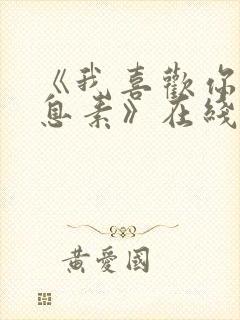 《我喜歡你
息素》在綫
黃愛國